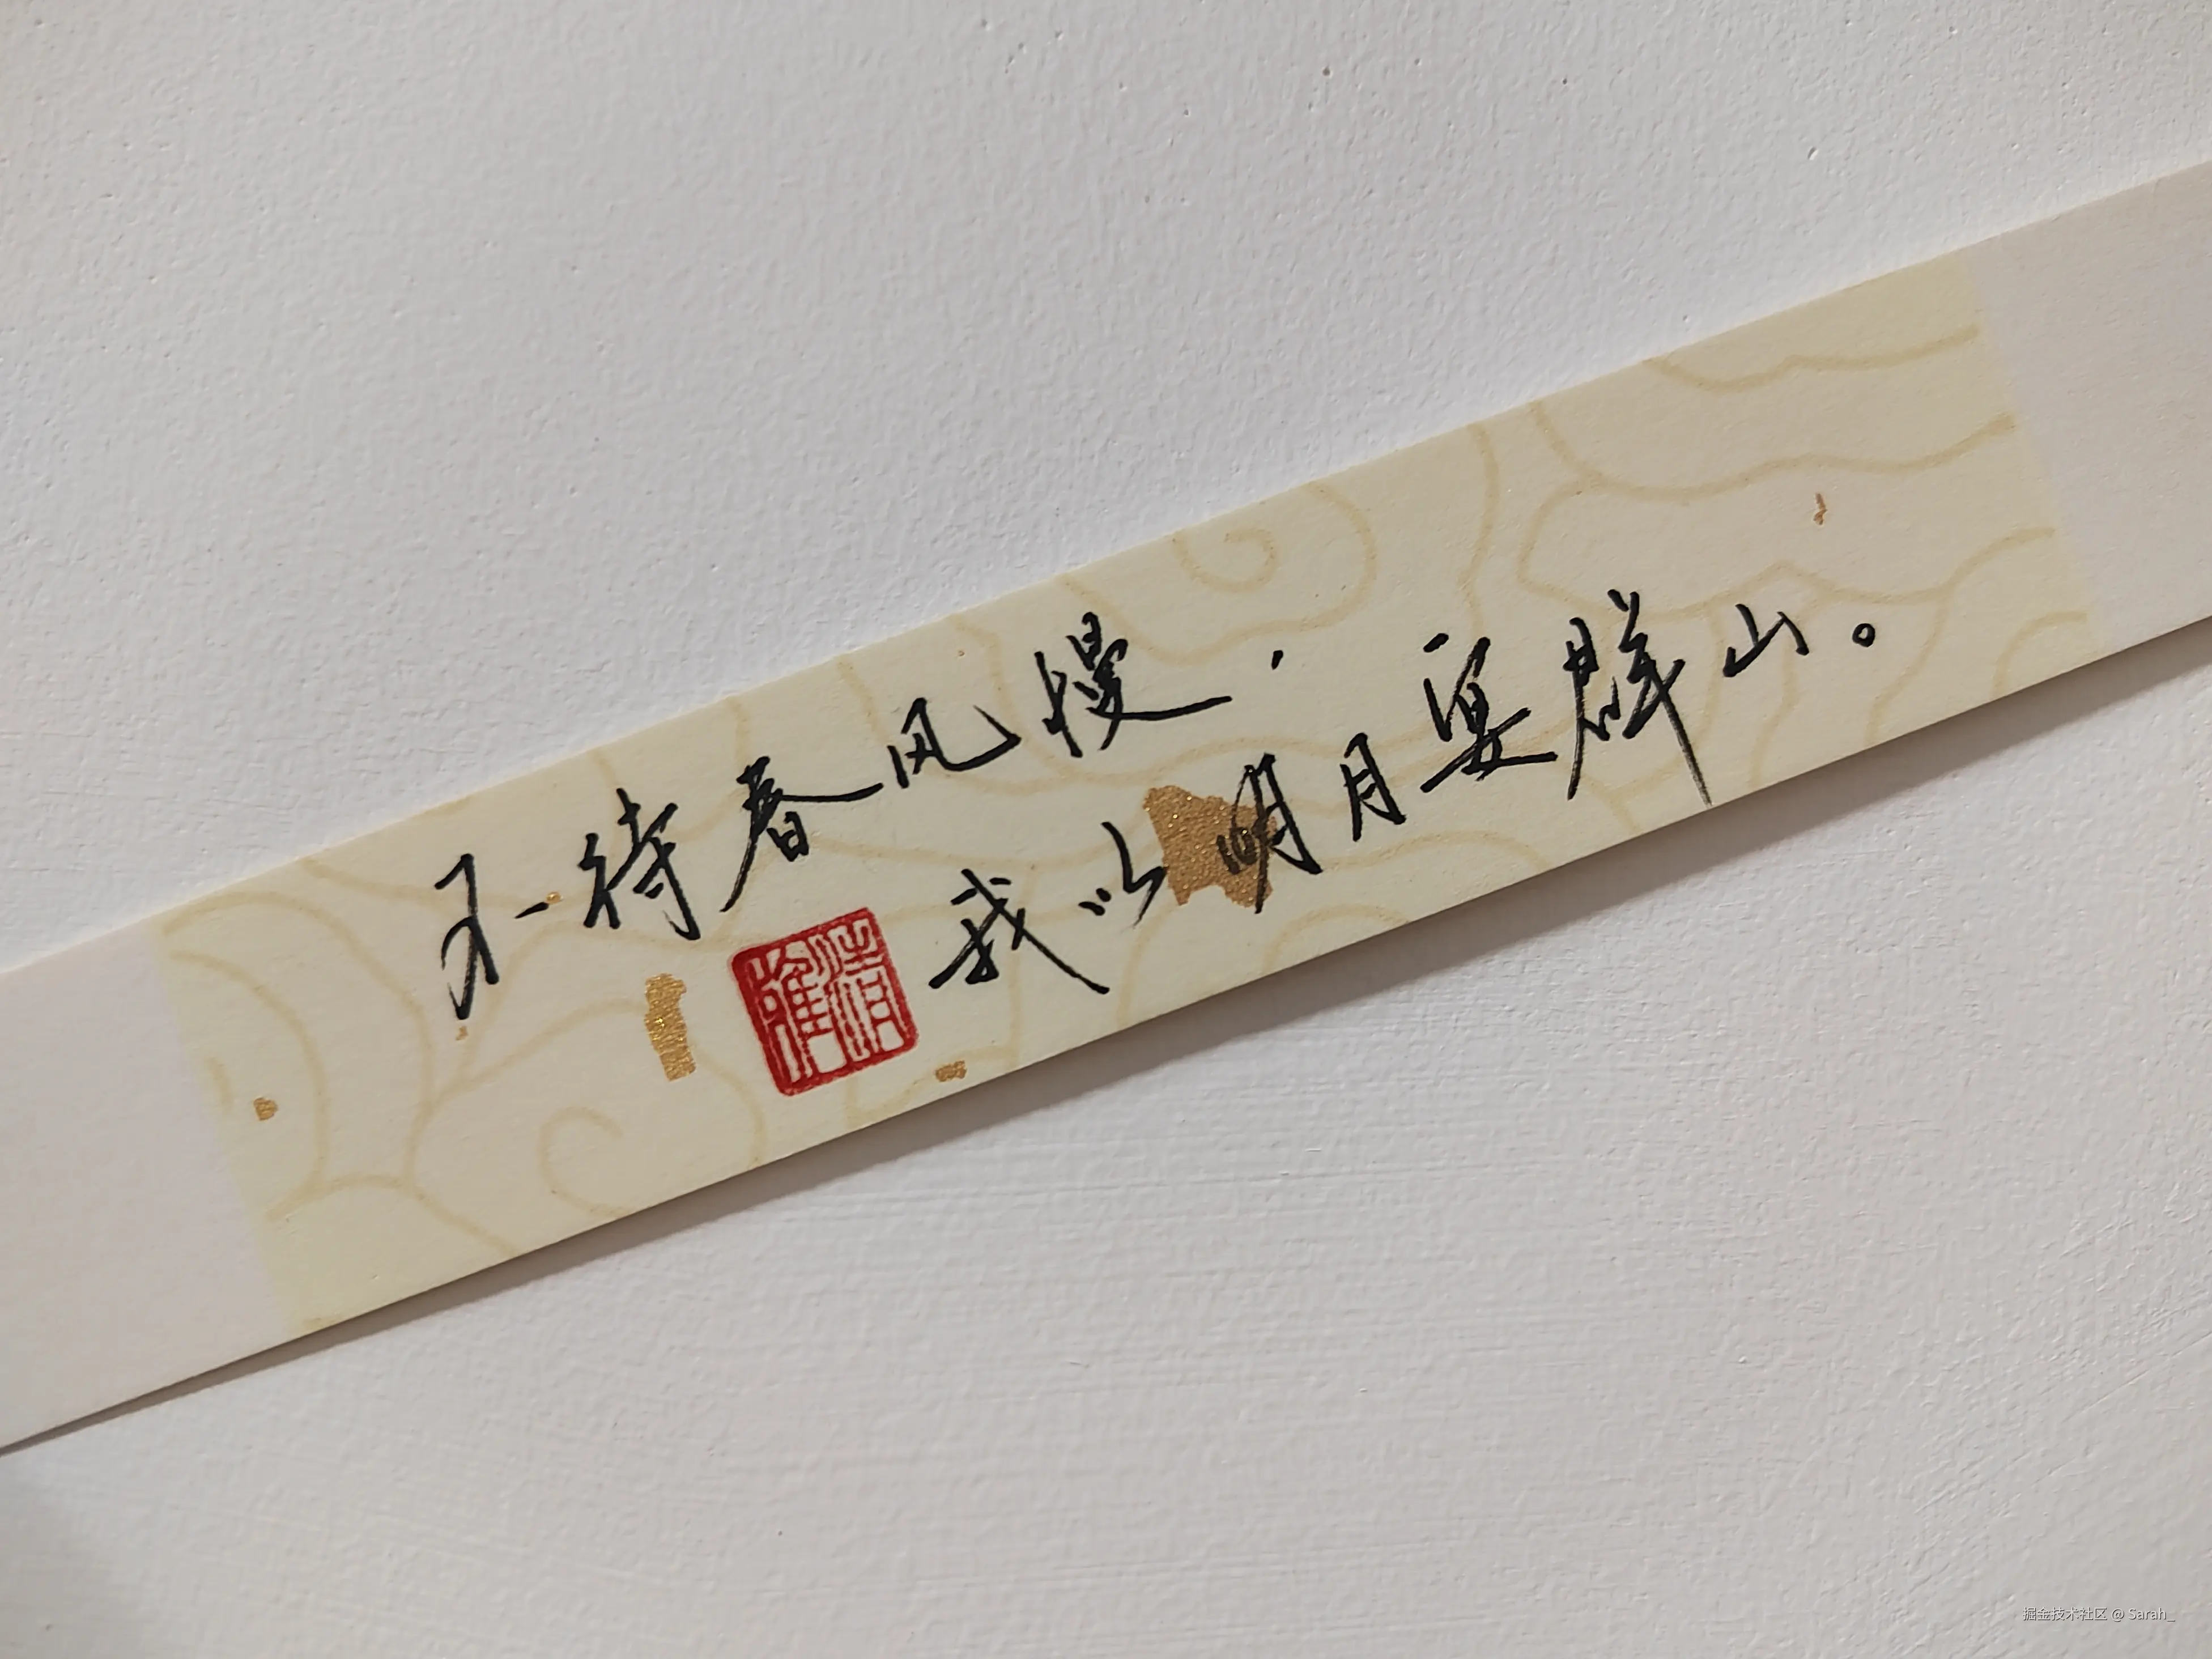 不待春风慢，
我以明月宴群山。
掘金技术社区 @ Sarah_